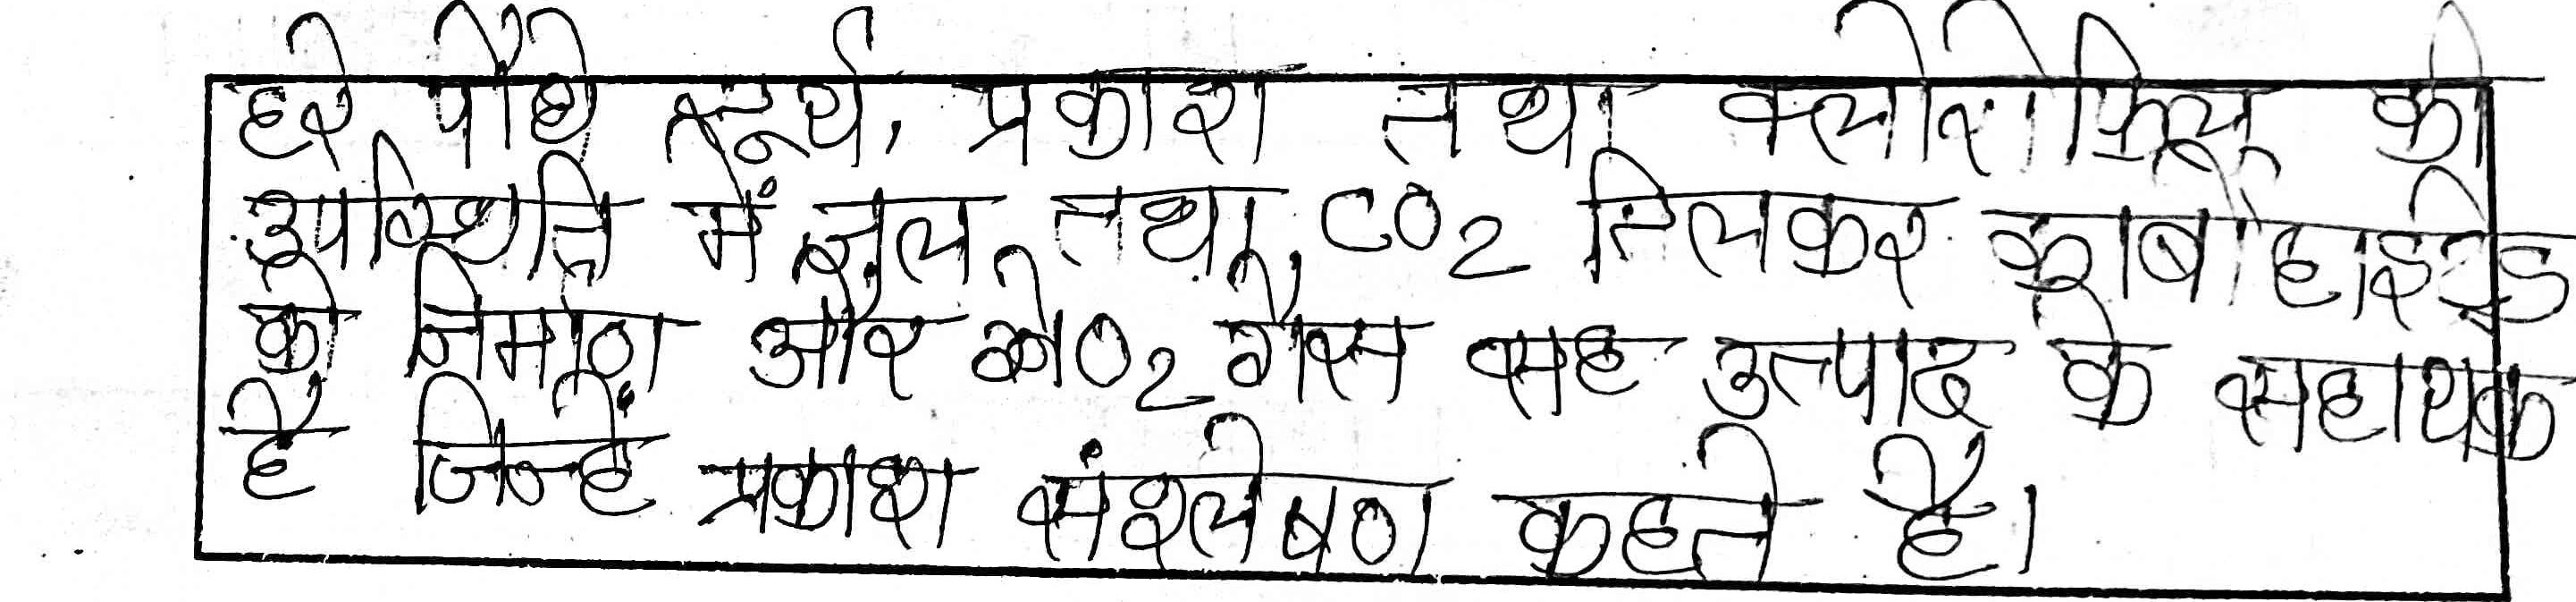 हरे पौधे सूर्य, प्रकाश तथा क्लोरोफिल की
उपस्थिति में जल तथा CO2 मिलकर कार्बोहाइड्रेड
को निर्माण और O2 गैस सह उत्पाद के सहायक
है जिन्हें प्रकाश संश्लेषण कहते है।